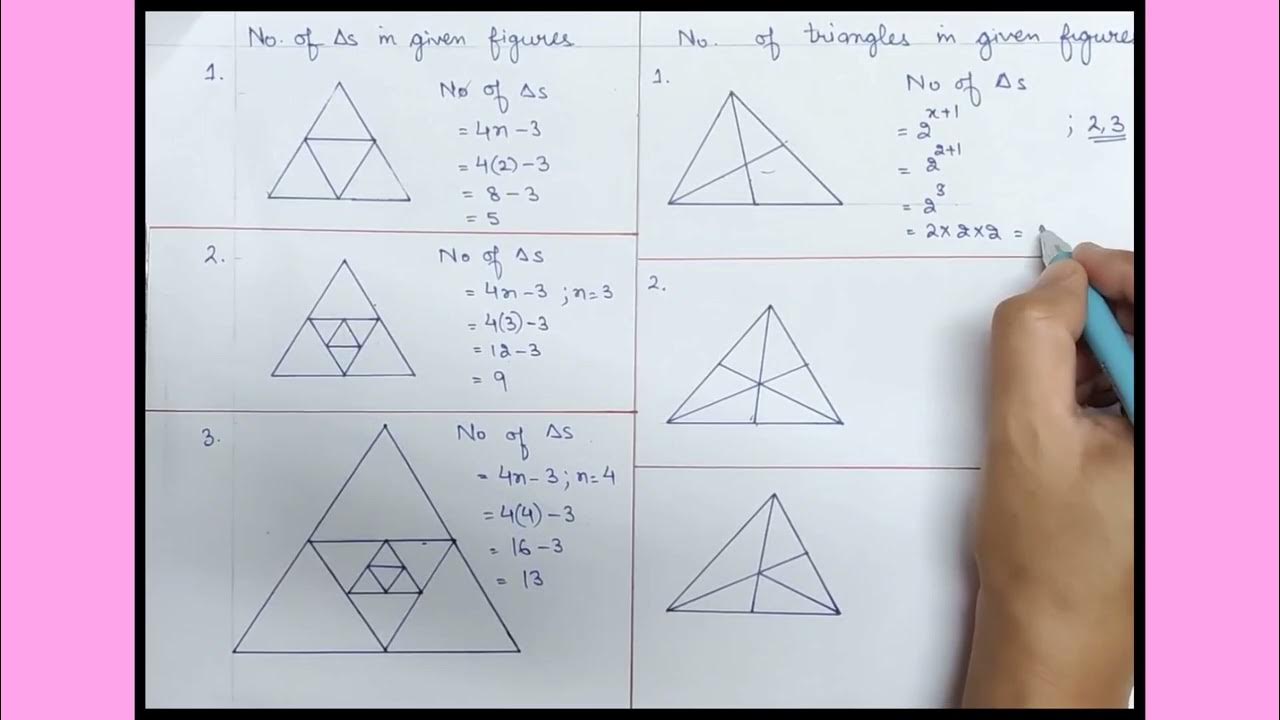 No. of Δs in given figures
1.
No of Δs
= 4n - 3
= 4(2) - 3
= 8 - 3
= 5
2.
No of Δs
= 4n - 3 ; n=3
= 4(3) - 3
= 12 - 3
= 9
3.
No of Δs
= 4n - 3 ; n=4
= 4(4) - 3
= 16 - 3
= 13
No. of triangles in given figure
1.
No of Δs
= 2^{x+1} ; 2,3
= 2^{2+1}
= 2^3
= 2 × 2 × 2 =
2.